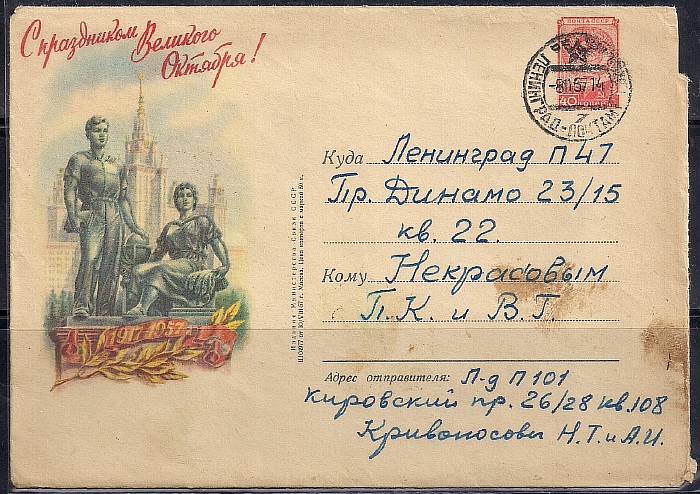 С праздником Великого
Октября!
ПОЧТА СССР
40 КОПЕЕК
ЛЕНИНГРАД-ПОЧТАМТ
-8 11 57 14
7
Куда Ленинград П 47
Пр. Динамо 23/15
кв. 22.
Кому Некрасовым
П. К. и В. Г.
Адрес отправителя: Л-д П 101
Кировский пр. 26/28 кв. 108
Кривоносовы Н. Т. и А. И.
Издание Министерства Связи СССР
г. Москва. Цена конверта с маркой
1917-1957